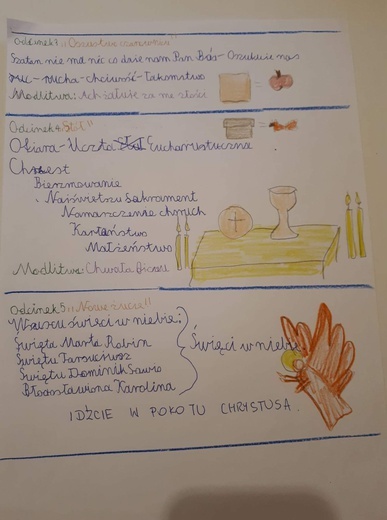 Odcinek 3 ,,
Szatan nie ma nic co daje nam Pan Bóg - Oszukuje nas
- chciwość - Łakomstwo
Modlitwa: Ach żałuję za me złości
Odcinek 4 ,,Stół"
Ofiara - Uczta Eucharystyczna
Chrzest
Bierzmowanie
Najświętszy Sakrament
Namaszczenie chorych
Kapłaństwo
Małżeństwo
Modlitwa: Chwała Ojcu
Odcinek 5 ,,Nowe życie"
Wszyscy święci w niebie:
Święta Marta Robin
Święty Tarsycjusz
Święty Dominik Savio
Błogosławiona Karolina
Święci w niebie
IDŹCIE W POKOJU CHRYSTUSA.